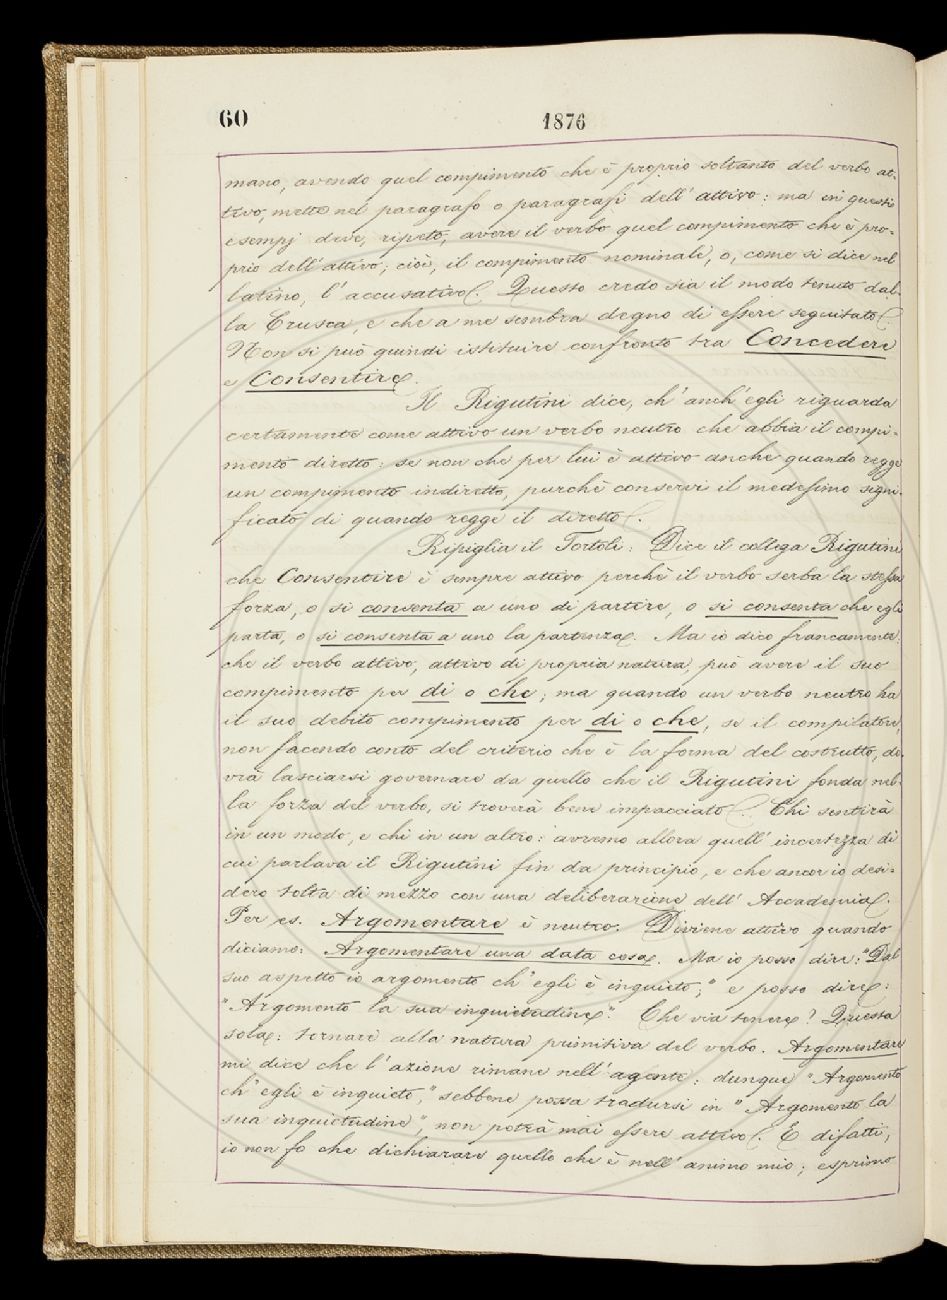 60
1876
mano, avendo quel compimento che è proprio soltanto del verbo at-
tivo, mette nel paragrafo o paragrafi dell'attivo: ma in questi
esempj deve, ripeto, avere il verbo quel compimento che è pro-
prio dell'attivo; cioè, il compimento nominale, o, come si dice nel
latino, l'accusativo. Questo credo sia il modo tenuto dal-
la Crusca, e che a me sembra degno di essere seguitato.
Non si può quindi istituire confronto tra Concedere
e Consentire.
Il Rigutini dice, ch'anch'egli riguarda
certamente come attivo un verbo neutro che abbia il compi-
mento diretto: se non che per lui è attivo anche quando regge
un compimento indiretto, purchè conservi il medesimo signi-
ficato di quando regge il diretto.
Ripiglia il Tortoli: Dice il collega Rigutini
che Consentire è sempre attivo perchè il verbo serba la stessa
forza, o si consenta a uno di partire, o si consenta che egli
parta, o si consenta a uno la partenza. Ma io dico francamente,
che il verbo attivo, attivo di propria natura, può avere il suo
compimento per di o che; ma quando un verbo neutro ha
il suo debito compimento per di o che, se il compilatore,
non facendo conto del criterio che è la forma del costrutto, do-
vrà lasciarsi governare da quello che il Rigutini fonda nel-
la forza del verbo, si troverà bene impacciato. Chi sentirà
in un modo, e chi in un altro: avremo allora quell'incertezza di
cui parlava il Rigutini fin da principio, e che ancor io desi-
dero tolta di mezzo con una deliberazione dell'Accademia.
Per es. Argomentare è neutro. Diviene attivo quando
diciamo: Argomentare una data cosa. Ma io posso dire: "Dal
suo aspetto io argomento ch'egli è inquieto;" e posso dire:
"Argomento la sua inquietudine". Che via tenere? Questa
sola: tornare alla natura primitiva del verbo. Argomentare
mi dice che l'azione rimane nell'agente: dunque "Argomento
ch'egli è inquieto", sebbene possa tradursi in "Argomento la
sua inquietudine", non potrà mai essere attivo. E difatti,
io non fo che dichiarare quello che è nell'animo mio; esprimo